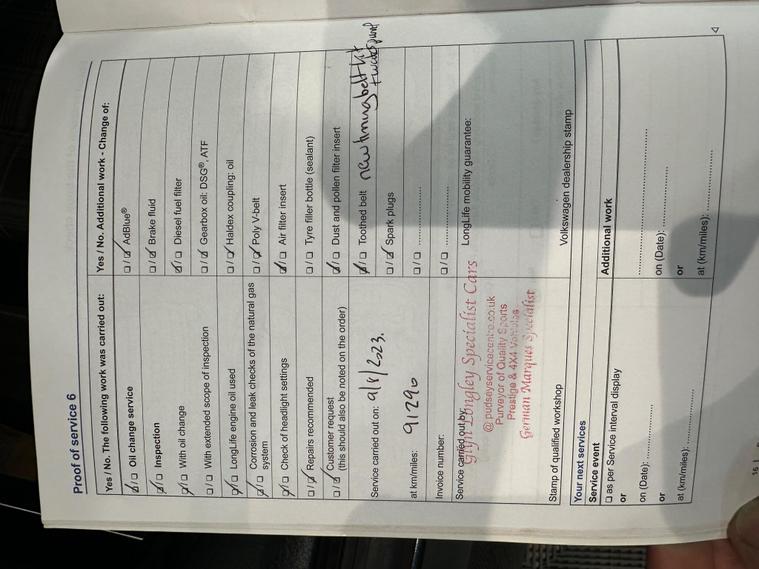 Proof of service 6
Yes / No. The following work was carried out:
Oil change service
Inspection
With oil change
With extended scope of inspection
LongLife engine oil used
Corrosion and leak checks of the natural gas
system
Check of headlight settings
Repairs recommended
Customer request
(this should also be noted on the order)
Service carried out on: 9/8/2023.
at km/miles: 91290
Invoice number:
Service carried out by:
Glyn Longley Specialist Cars
@ pudseyservicecentre.co.uk
Purveyor of Quality Sports
Prestige & 4X4 Vehicles
German Marques Specialist
Stamp of qualified workshop
Yes / No. Additional work - Change of:
AdBlue®
Brake fluid
Diesel fuel filter
Gearbox oil: DSG®, ATF
Haldex coupling: oil
Poly V-belt
Air filter insert
Tyre filler bottle (sealant)
Dust and pollen filter insert
Toothed belt new timing belt kit
Spark plugs
LongLife mobility guarantee:
Volkswagen dealership stamp
Your next services
Service event
as per Service interval display
or
on (Date):
or
at (km/miles):
Additional work
on (Date):
or
at (km/miles):
16